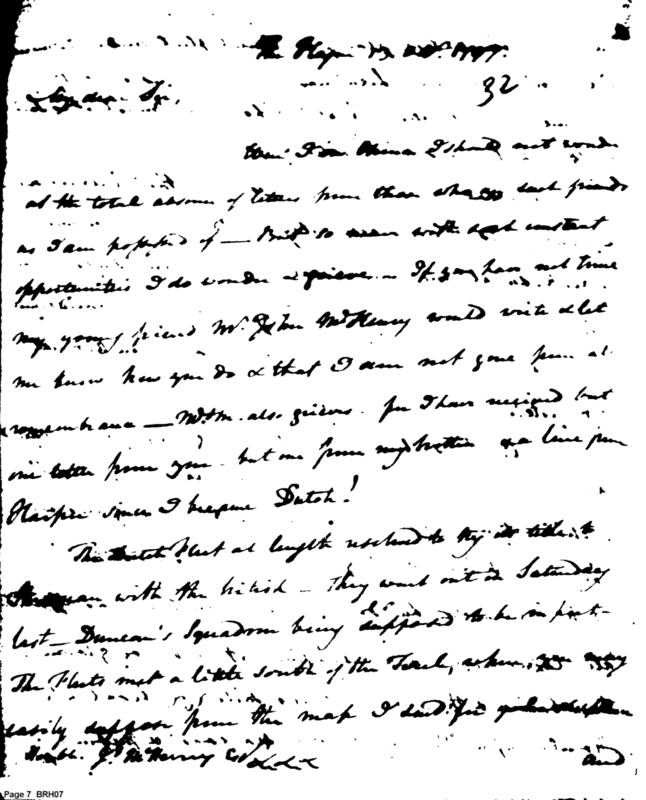 The Hague 13 Octr. 1797.
32
My dear Sir,
Were I in China I should not wonder
at the total absence of letters from those whose such friends
as I am possessed of — But so near with such constant
opportunities I do wonder & grieve — If you have not time
my young friend Mr. John McHenry would write & let
me know how you do & that I am not gone from all
remembrance — Mrs. M. also grieves for I have received but
one letter from you but one from my brother a line from
Harper since I became Dutch!
The Dutch Fleet at length resolved to try its title to
with the british — They went out on Saturday
last — Duncan's Squadron being supposed to be in port —
The Fleets met a little south of the Texel, where, you may
easily suppose from the map I send for
Honble. Js. McHenry Esqr
&c &c &c
and
Page 7 BRH07